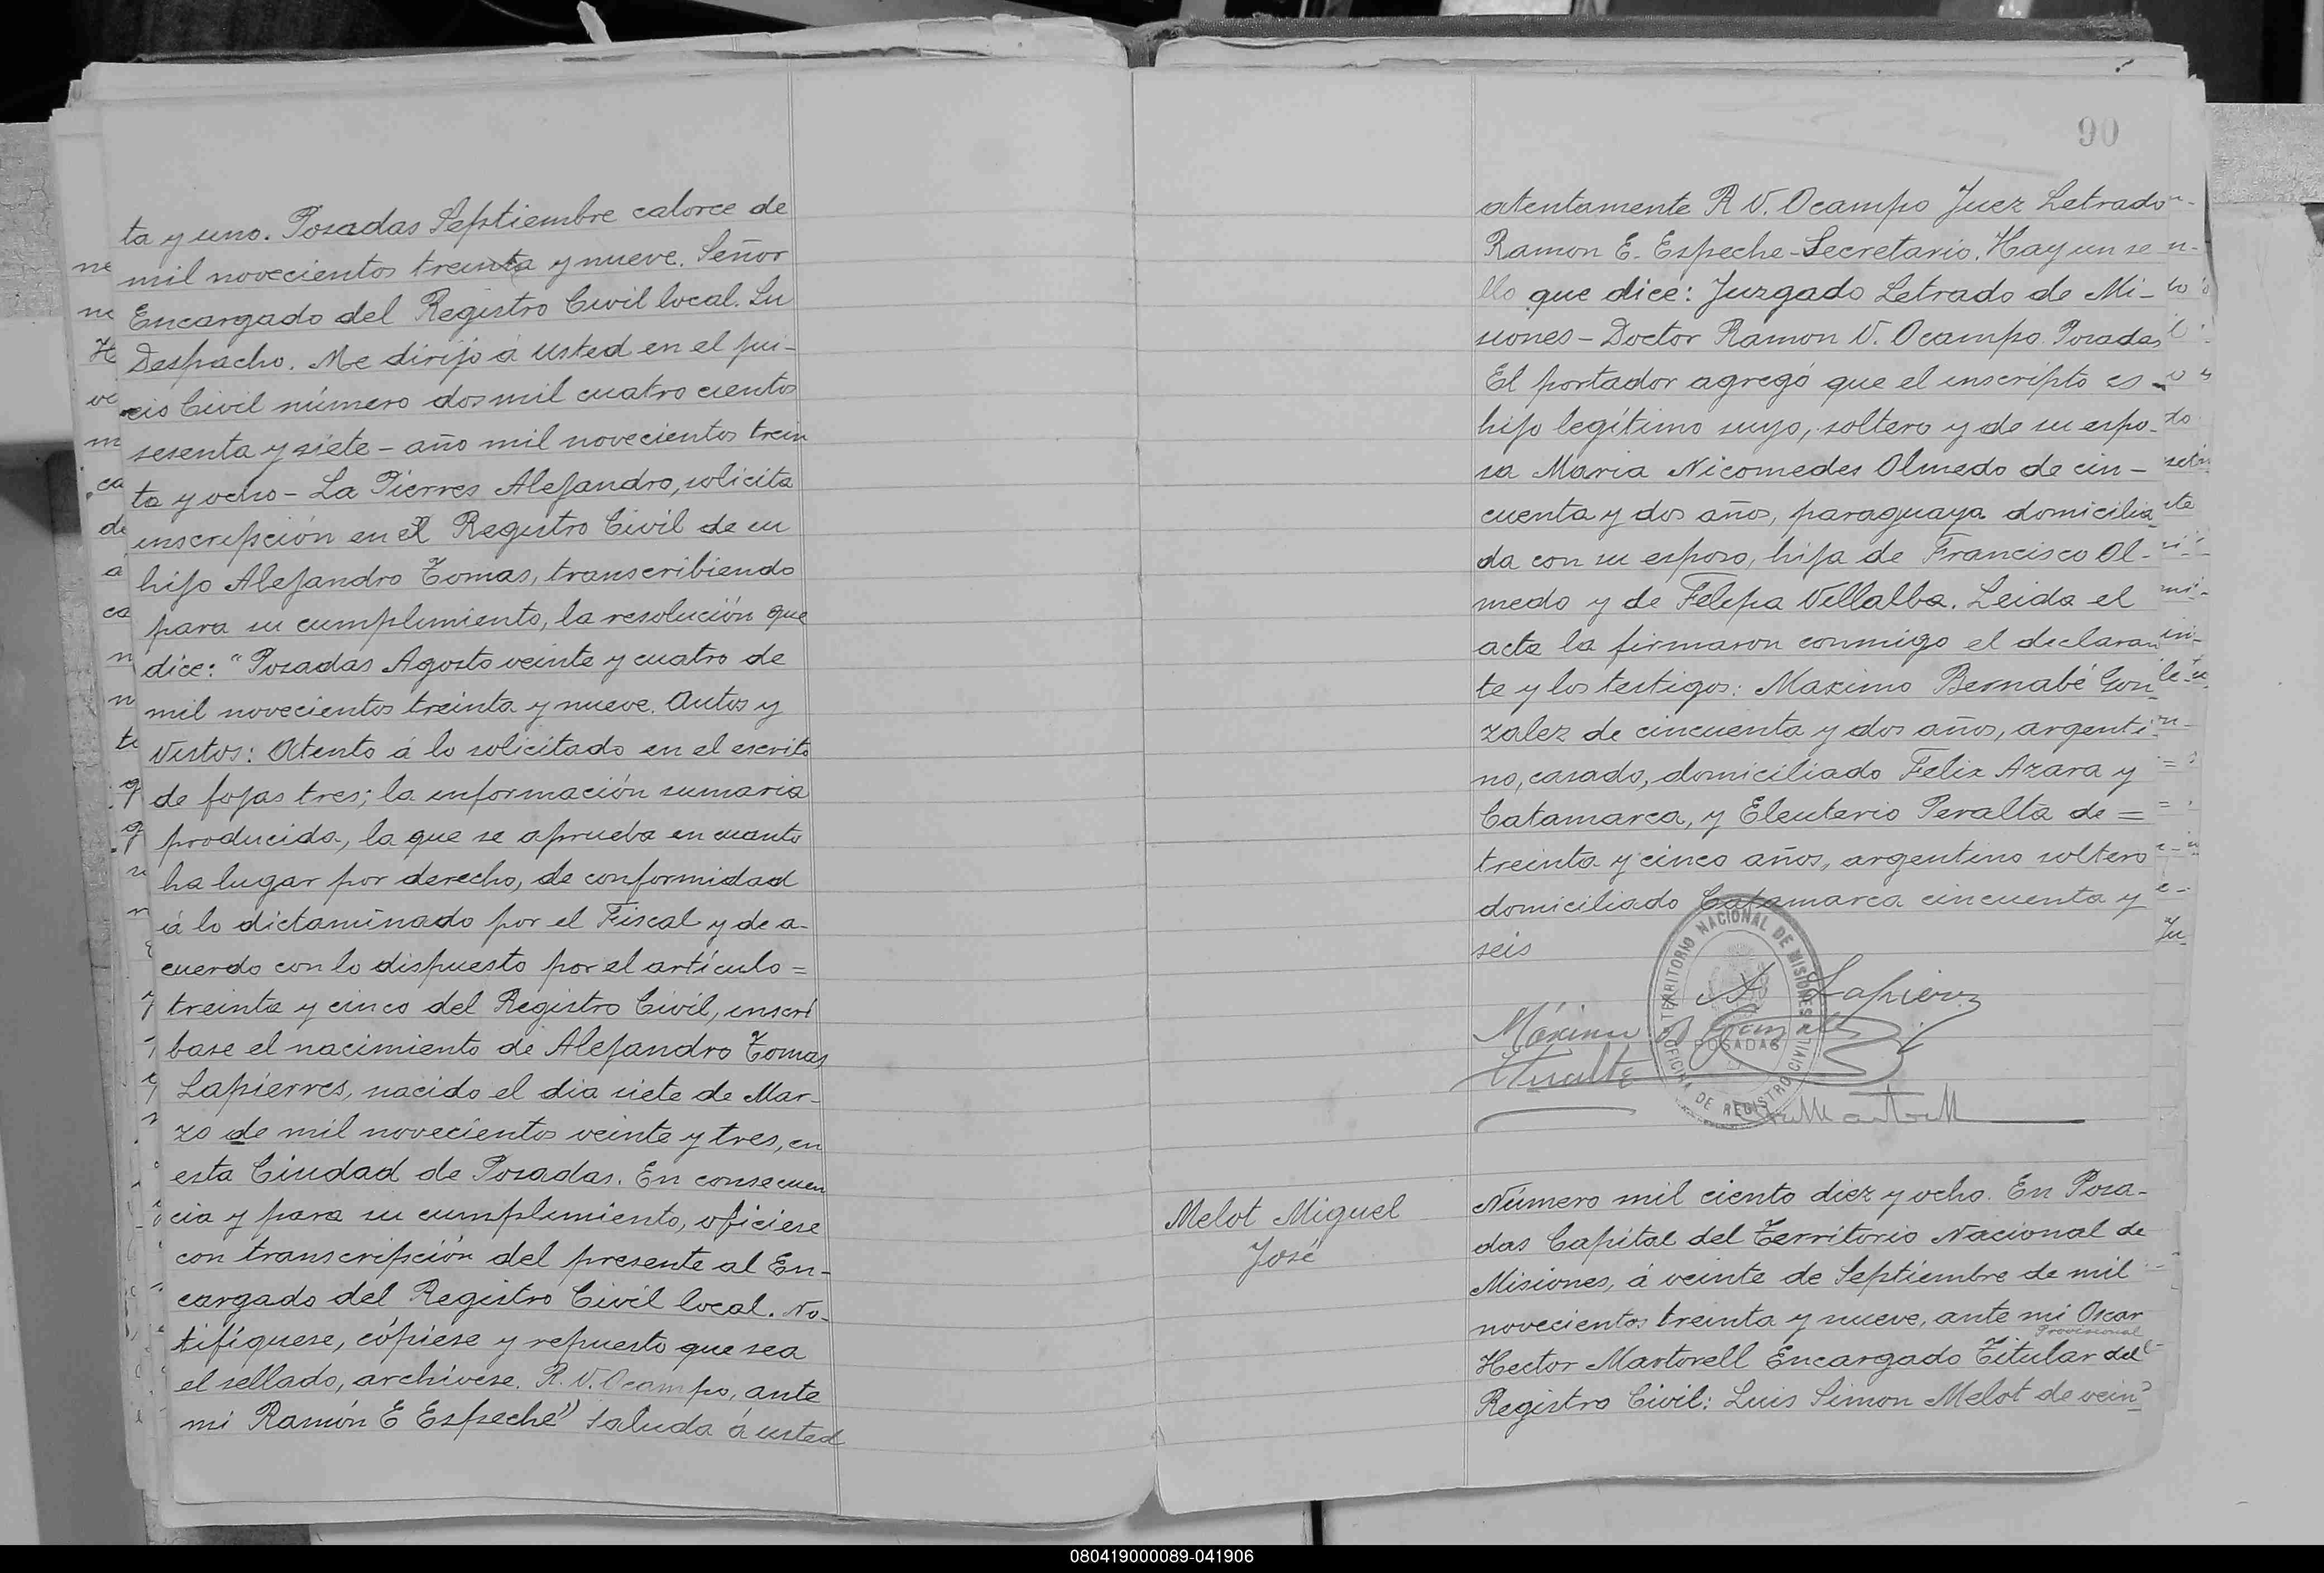 ta y uno. Posadas Septiembre catorce de
mil novecientos treinta y nueve. Señor
Encargado del Registro Civil local. Su
Despacho. Me dirijo á usted en el jui-
cio Civil número dos mil cuatro cientos
sesenta y siete - año mil novecientos trein
ta y ocho - La Pierres Alejandro, solicita
inscripción en el Registro Civil de su
hijo Alejandro Tomas, transcribiendo
para su cumplimiento, la resolución que
dice: "Posadas Agosto veinte y cuatro de
mil novecientos treinta y nueve. Autos y
Vistos: Atento á lo solicitado en el escrito
de fojas tres; la información sumaria
producida, la que se aprueba en cuanto
ha lugar por derecho, de conformidad
á lo dictaminado por el Fiscal y de a-
cuerdo con lo dispuesto por el artículo =
treinta y cinco del Registro Civil, inscrí
base el nacimiento de Alejandro Tomas
Lapierres, nacido el dia siete de Mar-
zo de mil novecientos veinte y tres, en
esta Ciudad de Posadas. En consecuen
cia y para su cumplimiento, ofíciese
con transcripción del presente al En-
cargado del Registro Civil local. No-
tifíquese, cópiese y repuesto que sea
el sellado, archívese. R. V. Ocampo, ante
mi Ramón E Espeche" Saluda á usted
90
atentamente R V. Ocampo Juez Letrado
Ramon E. Espeche - Secretario. Hay un se
llo que dice: Juzgado Letrado de Mi-
siones - Doctor Ramon V. Ocampo Posadas
El portador agregó que el inscripto es
hijo legítimo suyo, soltero y de su espo-
sa Maria Nicomedes Olmedo de cin-
cuenta y dos años, paraguaya domicilia
da con su esposo, hija de Francisco Ol-
medo y de Felipa Villalba. Leida el
acta la firmaron conmigo el declaran
te y los testigos: Maximo Bernabé Gon
zalez de cincuenta y dos años, argenti
no, casado, domiciliado Felix Azara y
Catamarca, y Eleuterio Peralta de =
treinta y cinco años, argentino soltero
domiciliado Catamarca cincuenta y
seis
A Lapierre
Máximo B Gonzalez
TERRITORIO NACIONAL DE MISIONES
POSADAS
OFICINA DE REGISTRO CIVIL
Melot Miguel
José
Número mil ciento diez y ocho. En Posa-
das Capital del Territorio Nacional de
Misiones, á veinte de Septiembre de mil
novecientos treinta y nueve, ante mi Oscar
Provisional
Hector Martorell Encargado Titular del
Registro Civil: Luis Simon Melot de vein
080419000089-041906